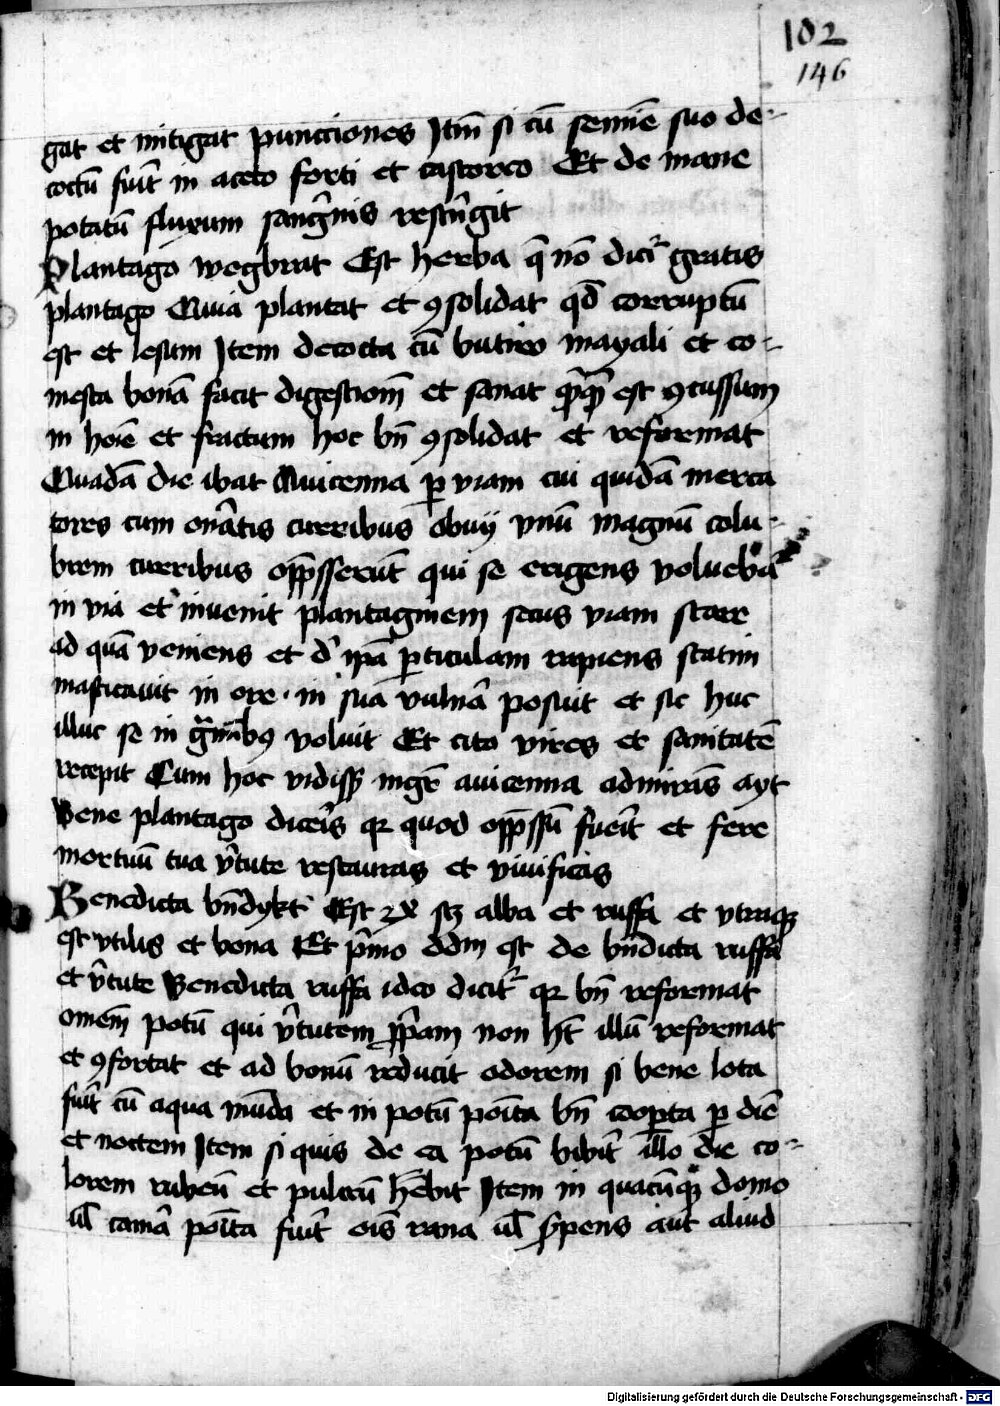 102
146
gat et mitigat puncciones Itm̄ si cū semīe suo de-
coctū fuit̄ in aceto forti et castoreo Et de mane
potatū fluxum sanḡnis rest̄ngit
Plantago wegbrat Est herba q̄ nō dicr̄ gratis
plantago Quia plantat et ꝯsolidat qd̄ corruptū
est et lesum Item decocta cū butiro mayali et co-
mesta bonā facit digestiom̄ et sanat est ꝯcussum
in hoīe et fractum hoc bn̄ ꝯsolidat et reformat
Quadā die ibat Auicenna ꝑ viam cui quidā merca
tores cum on̄atis curribus obuij vnū magnū colu-
brem curribus opp̄sserūt qui se erigens voluebat̄
in via et inuenit plantaginem secus viam stare
ad quā veniens et d' ip̄a ꝑticulam rapiens statim
masticauit in ore · in sua vuln̄a posuit et sic huc
illuc se in voluit Et cito vires et sanitatē
recepit Cum hoc vidiss; mgr̄ auicenna admirās ayt
Bene plantago dicer̄s qꝛ quod opp̄ssū fuer̄it et fere
mortuū tua v̄tute restauras et viuificas
Benedicta bn̄dykt Est 2x scz alba et ruffa et vtraqꝫ
est vtilis et bona Et p̄mo dd̄m est de bn̄dicta ruffa
et v̄tute Benedicta ruffa ideo dicit̄ qꝛ bn̄ reformat
omēm potū qui v̄tutem pp̄am non h̄t illū reformat
et ꝯfortat et ad bonū reducit odorem si bene lota
fuit̄ cū aqua mūda et in potū poīta bn̄ cooꝑta ꝑ diē
et noctem Item si quis de ea potū bibit̄ illo die co-
lorem rubeū et pulcrū h̄ebit Item in quacūqꝫ domo
ul̄ camā poīta fuit̄ oīs rana ul̄ s̄pens aut aliud
Digitalisierung gefördert durch die Deutsche Forschungsgemeinschaft - DFG